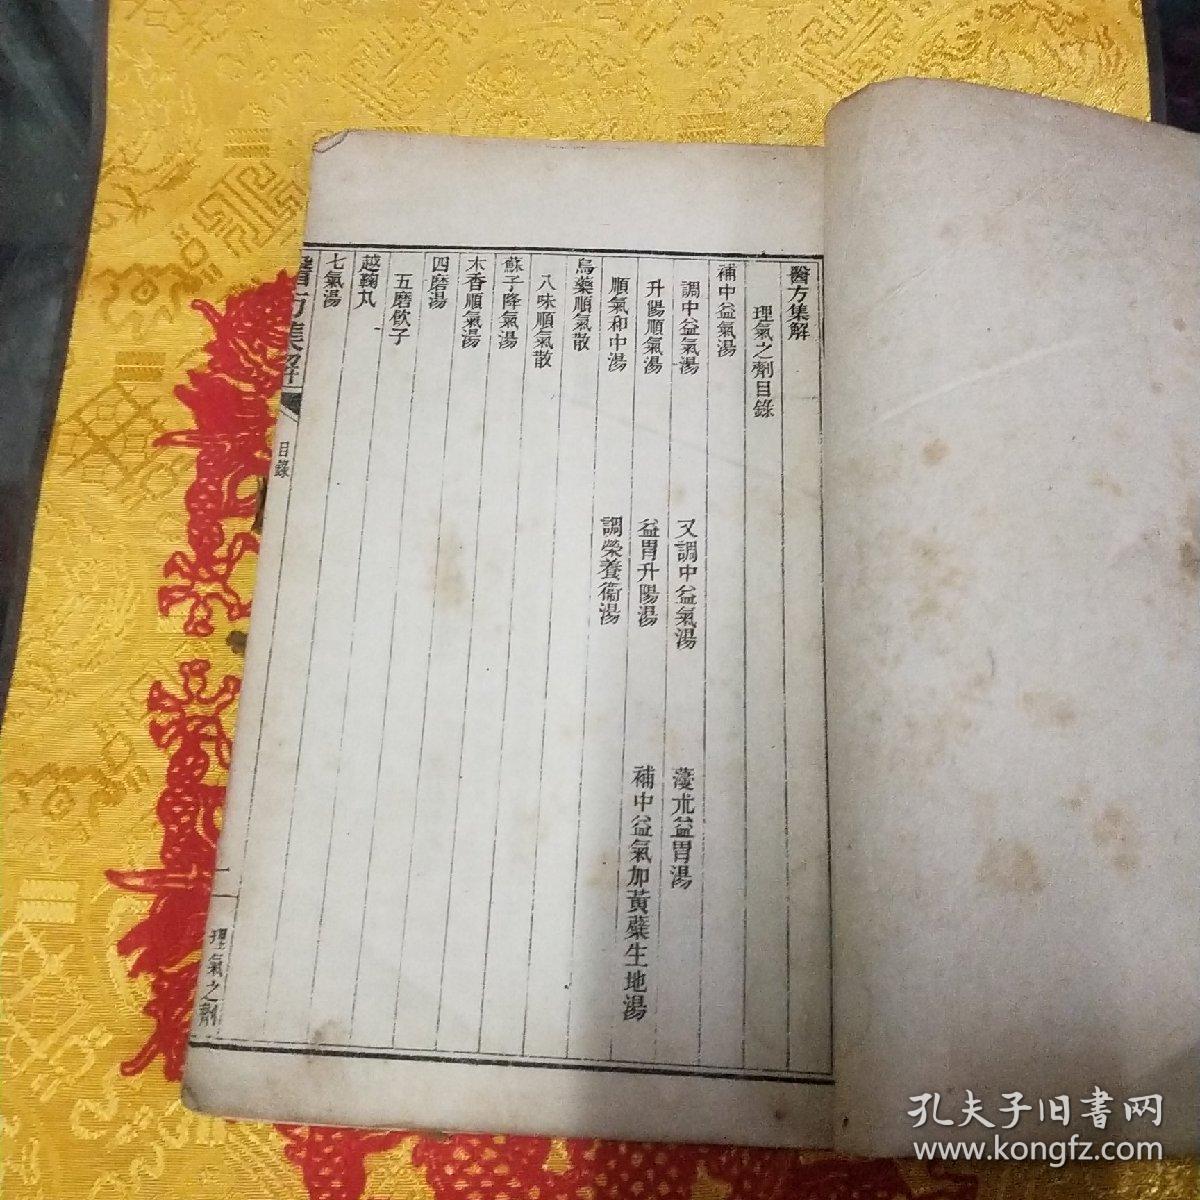 醫方集解
理氣之劑目錄
補中益氣湯
調中益氣湯 又調中益氣湯 蔓朮益胃湯
升陽順氣湯 益胃升陽湯 補中益氣加黃蘗生地湯
順氣和中湯 調榮養衞湯
烏藥順氣散
八味順氣散
蘇子降氣湯
木香順氣湯
四磨湯
五磨飲子
越鞠丸
七氣湯
醫方集解 目錄 一 理氣之劑
孔夫子旧书网
www.kongfz.com